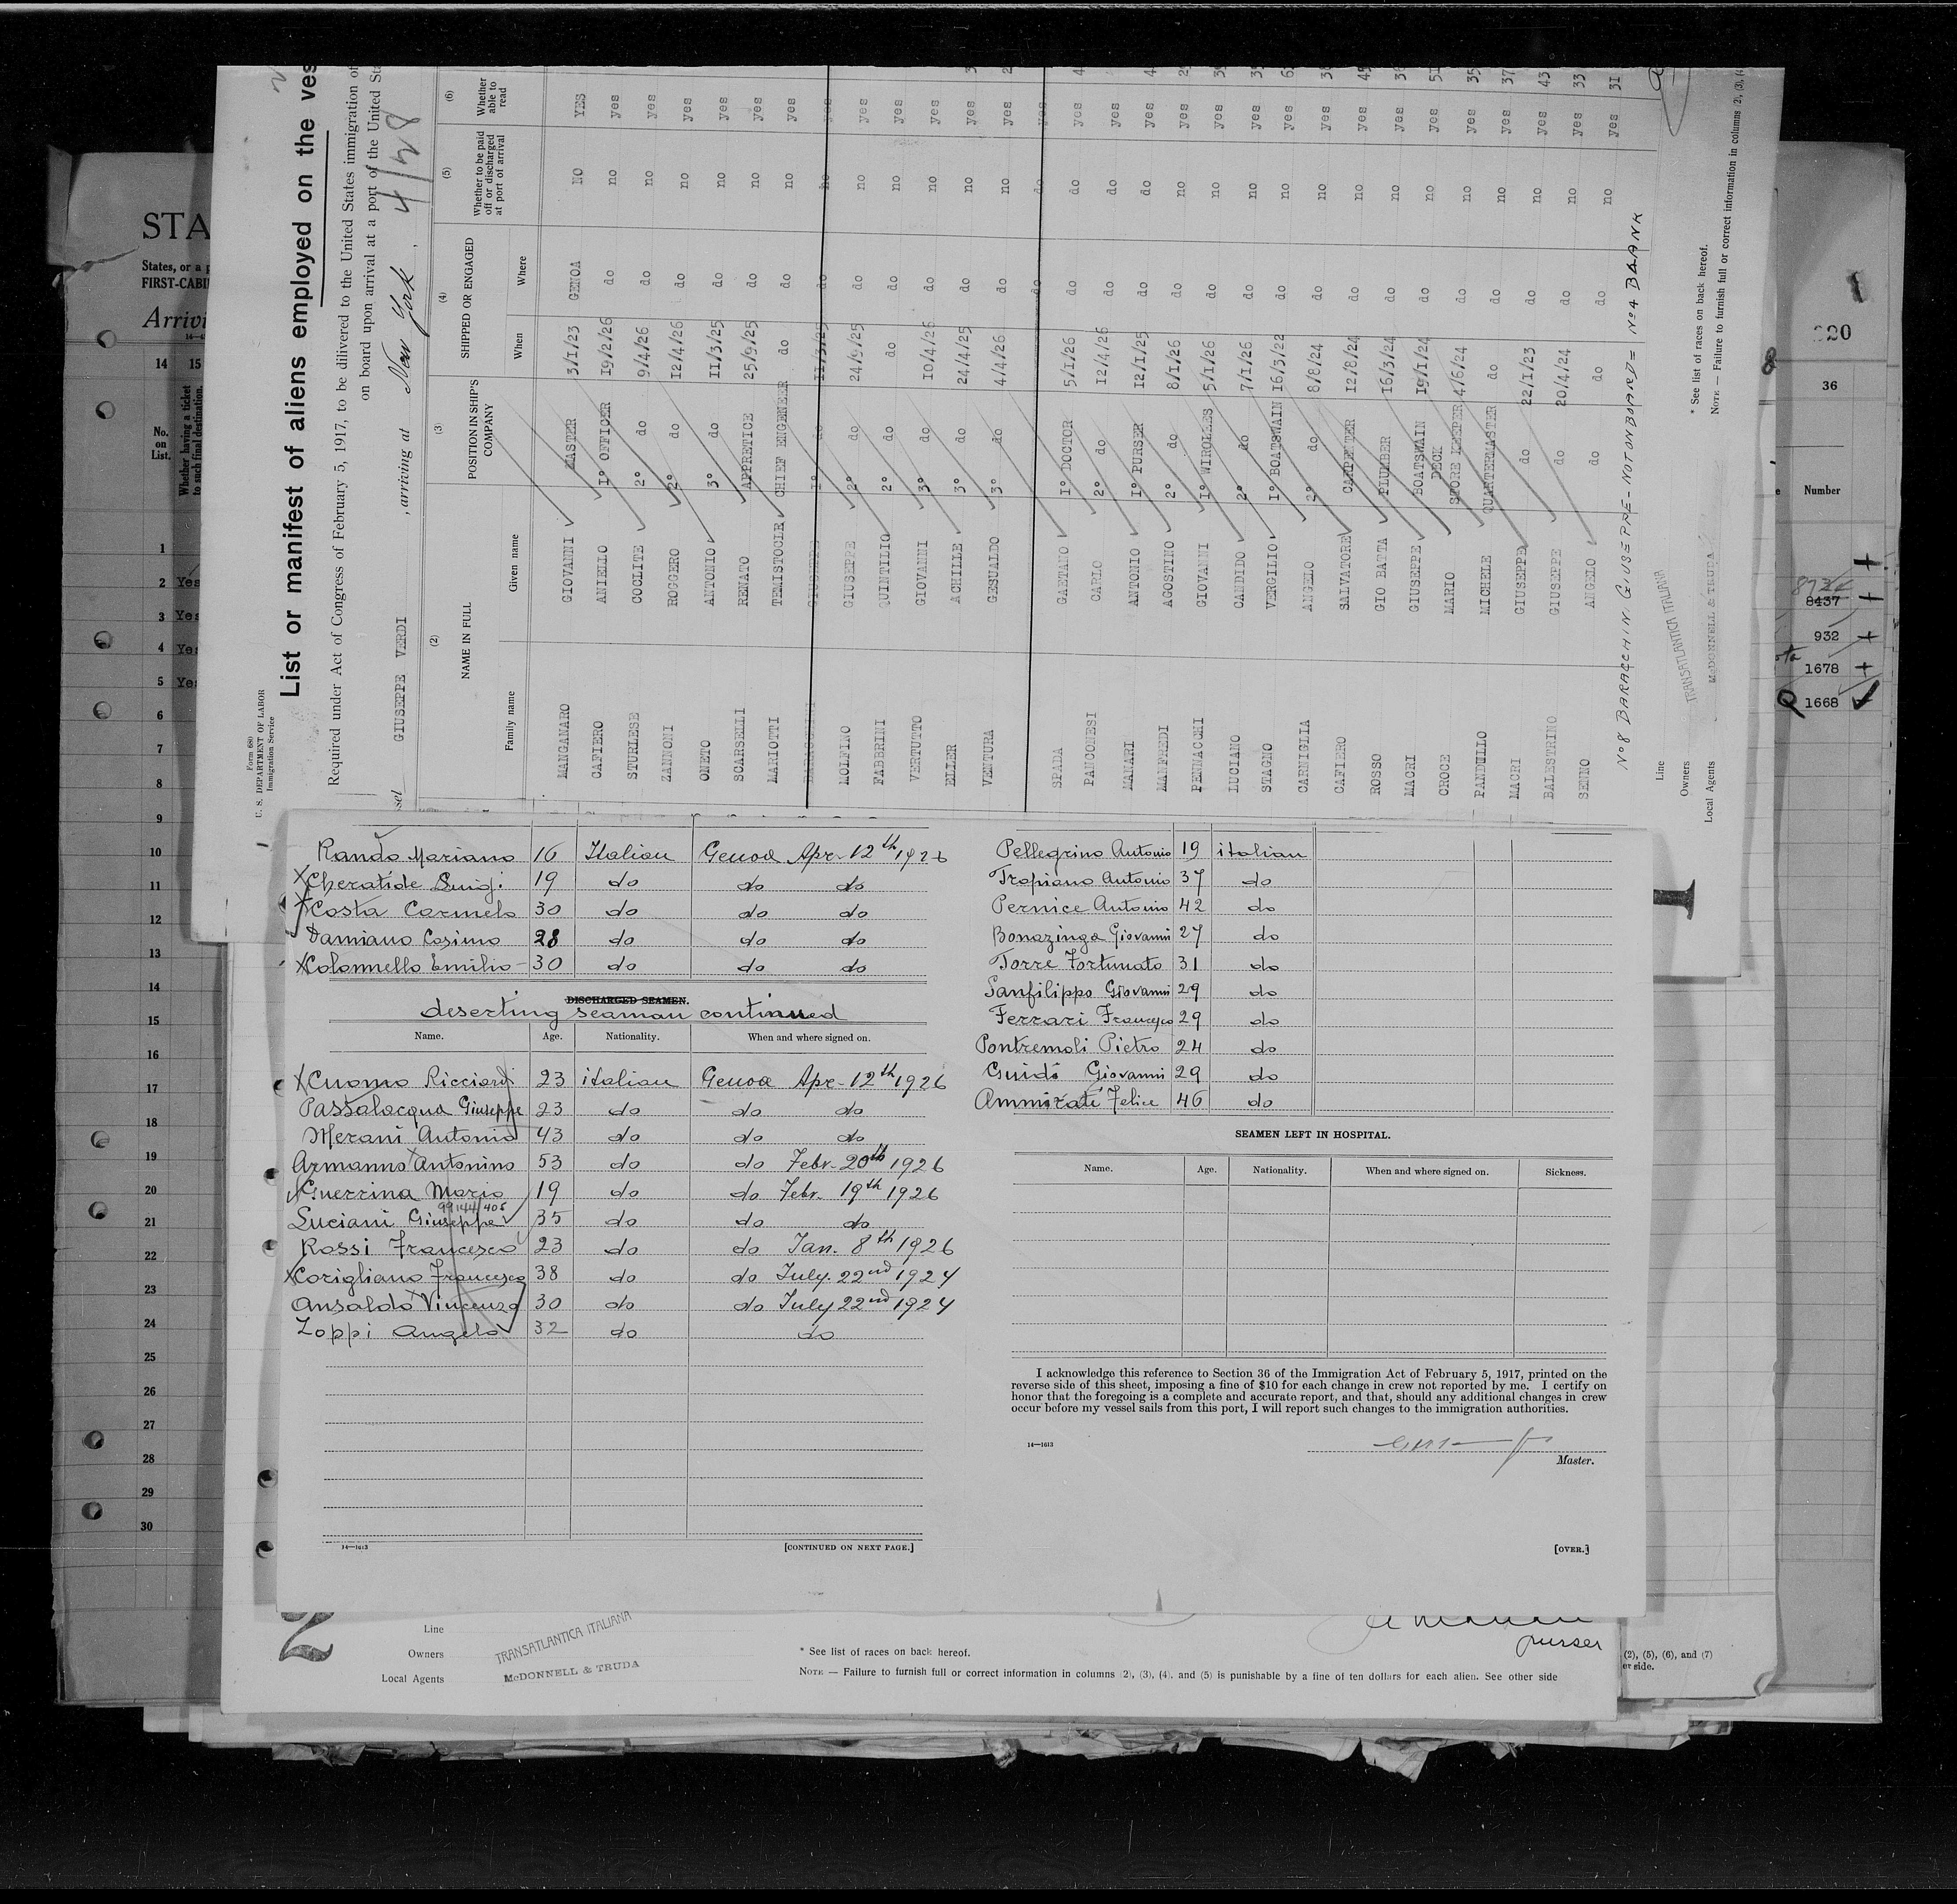 STA
States, or a p
FIRST-CABI
Arrivi
14 15
No. on List.
Whether having a ticket to such final destination.
1
2 Yes
3 Yes
4 Yes
5 Yes
6
7
8
9
10
11
12
13
14
15
16
17
18
19
20
21
22
23
24
25
26
27
28
29
30
Form 680
U. S. DEPARTMENT OF LABOR
Immigration Service
List or manifest of aliens employed on the ves
Required under Act of Congress of February 5, 1917, to be dilivered to the United States immigration of
on board upon arrival at a port of the United Sta
sel GIUSEPPE VERDI , arriving at New York , 4/28
(2) (3) (4) (5) (6)
NAME IN FULL
Family name Given name
POSITION IN SHIP'S COMPANY
SHIPPED OR ENGAGED
When Where
Whether to be paid off or discharged at port of arrival
Whether able to read
MANGANARO GIOVANNI MASTER 3/1/23 GENOA NO YES
CAFIERO ANIELLO 1° OFFICER 19/2/26 do no yes
STURLESE COCLITE 2° do 9/4/26 do no yes
ZANNONI ROGGERO 2° do 12/4/26 do no yes
ONETO ANTONIO 3° do 11/3/25 do no yes
SCARSELLI RENATO APPRETICE 25/9/25 do no yes
MARIOTTI TEMISTOCLE CHIEF ENGENEER do do no yes
BARACCHINI GIUSEPPE 1° do 11/3/25 do no yes
MOLFINO GIUSEPPE 2° do 24/9/25 do no yes
FABBRINI QUINTILIO 2° do do do no yes
VERTUTTO GIOVANNI 3° do 10/4/26 do no yes
ELLER ACHILLE 3° do 24/4/25 do no yes 3
VENTURA GESUALDO 3° do 4/4/26 do no yes 2
do do yes
SPADA GAETANO 1° DOCTOR 5/1/26 do do yes 4
PANCONESI CARLO 2° do 12/4/26 do do yes
MANARI ANTONIO 1° PURSER 12/1/25 do do yes 4
MANFREDI AGOSTINO 2° do 8/1/26 do no yes 29
PENNACCHI GIOVANNI 1° WIROLEES 5/1/26 do no yes 39
LUCIANO CANDIDO 2° do 7/1/26 do no yes 35
STAGNO VERGILIO 1° BOATSWAIN 16/3/22 do no yes 62
CARNIGLIA ANGELO 2° do 8/8/24 do no yes 38
CAFIERO SALVATORE CARPENTER 12/8/24 do no yes 45
ROSSO GIO BATTA PLUMBER 16/3/24 do no yes 36
MACRI GIUSEPPE BOATSWAIN DECK 19/1/24 do no yes 51
CROCE MARIO STORE KEEPER 4/6/24 do no yes 35
PANDULLO MICHELE QUANTERMASTER do do no yes 37
MACRI GIUSEPPE do 22/1/23 do no yes 43
BALESTRINO GIUSEPPE do 20/4/24 do no yes 33
SENNO ANGELO do do do no yes 31
N° 8 BARACCHINI GIUSEPPE - NOT ON BOARD = N° 4 BLANK
Line TRANSATLANTICA ITALIANA
Owners
Local Agents McDONNELL & TRUDA
* See list of races on back hereof.
NOTE — Failure to furnish full or correct information in columns (2), (3), (4
20
36
Number
8437
932
1678
1668
Rando Mariano 16 Italian Genoa Apr. 12th 1926
Cheratide Luigi 19 do do do
Costa Carmelo 30 do do do
Damiano Cosimo 28 do do do
Colonnello Emilio 30 do do do
DISCHARGED SEAMEN.
deserting seaman continued
Name. Age. Nationality. When and where signed on.
Cuomo Ricciardi 23 italian Genoa Apr. 12th 1926
Passalacqua Giuseppe 23 do do do
Merani Antonio 43 do do do
Armanno Antonino 53 do do Febr. 20th 1926
Guerrina Mario 19 do do Febr. 19th 1926
99144/405
Luciani Giuseppe 35 do do do
Rossi Francesco 23 do do Jan. 8th 1926
Corigliano Francesco 38 do do July. 22nd 1924
Ansaldo Vincenzo 30 do do July 22nd 1924
Zoppi Angelo 32 do do
14—1613
[CONTINUED ON NEXT PAGE.]
Pellegrino Antonio 19 italian
Tropiano Antonio 37 do
Pernice Antonio 42 do
Bonazinga Giovanni 27 do
Torre Fortunato 31 do
Sanfilippo Giovanni 29 do
Ferrari Francesco 29 do
Pontremoli Pietro 24 do
Guidi Giovanni 29 do
Ammirati Felice 46 do
SEAMEN LEFT IN HOSPITAL.
Name. Age. Nationality. When and where signed on. Sickness.
I acknowledge this reference to Section 36 of the Immigration Act of February 5, 1917, printed on the
reverse side of this sheet, imposing a fine of $10 for each change in crew not reported by me. I certify on
honor that the foregoing is a complete and accurate report, and that, should any additional changes in crew
occur before my vessel sails from this port, I will report such changes to the immigration authorities.
14—1613
Master.
[OVER.]
2
Line TRANSATLANTICA ITALIANA
Owners
Local Agents McDONNELL & TRUDA
* See list of races on back hereof.
NOTE — Failure to furnish full or correct information in columns (2), (3), (4), and (5) is punishable by a fine of ten dollars for each alien. See other side
purser
(2), (5), (6), and (7)
er side.